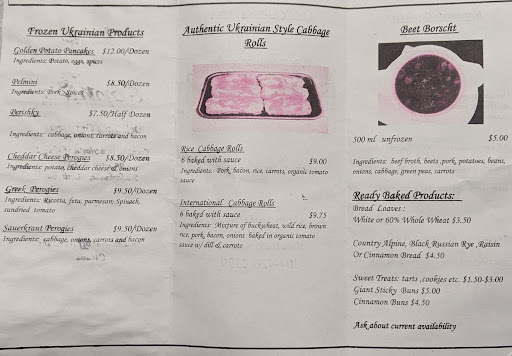 Frozen Ukrainian Products
Golden Potato Pancakes $12.00/Dozen
Ingredients: Potato, eggs, spices
Pelmini $8.50/Dozen
Ingredients: Pork, Spices
Perishky $7.50/Half Dozen
Ingredients: cabbage, onions, carrots and bacon
Cheddar Cheese Perogies $8.50/Dozen
Ingredients: potato, cheddar cheese & onions
Greek Perogies $9.50/Dozen
Ingredients: Ricotta, feta, parmesan, Spinach,
sundried tomato
Sauerkraut Perogies $9.50/Dozen
Ingredients: cabbage, onions, carrots and bacon
Authentic Ukrainian Style Cabbage
Rolls
Rice Cabbage Rolls
6 baked with sauce $9.00
Ingredients: Pork, bacon, rice, carrots, organic tomato
sauce
International Cabbage Rolls
6 baked with sauce $9.75
Ingredients: Mixture of buckwheat, wild rice, brown
rice, pork, bacon, onions baked in organic tomato
sauce w/ dill & carrots
Beet Borscht
500 ml unfrozen $5.00
Ingredients: beef broth, beets ,pork, potatoes, beans,
onions, cabbage, green peas, carrots
Ready Baked Products:
Bread Loaves :
White or 60% Whole Wheat $3.50
Country Alpine, Black Russian Rye ,Raisin
Or Cinnamon Bread $4.50
Sweet Treats: tarts ,cookies etc. $1.50-$3.00
Giant Sticky Buns $5.00
Cinnamon Buns $4.50
Ask about current availability